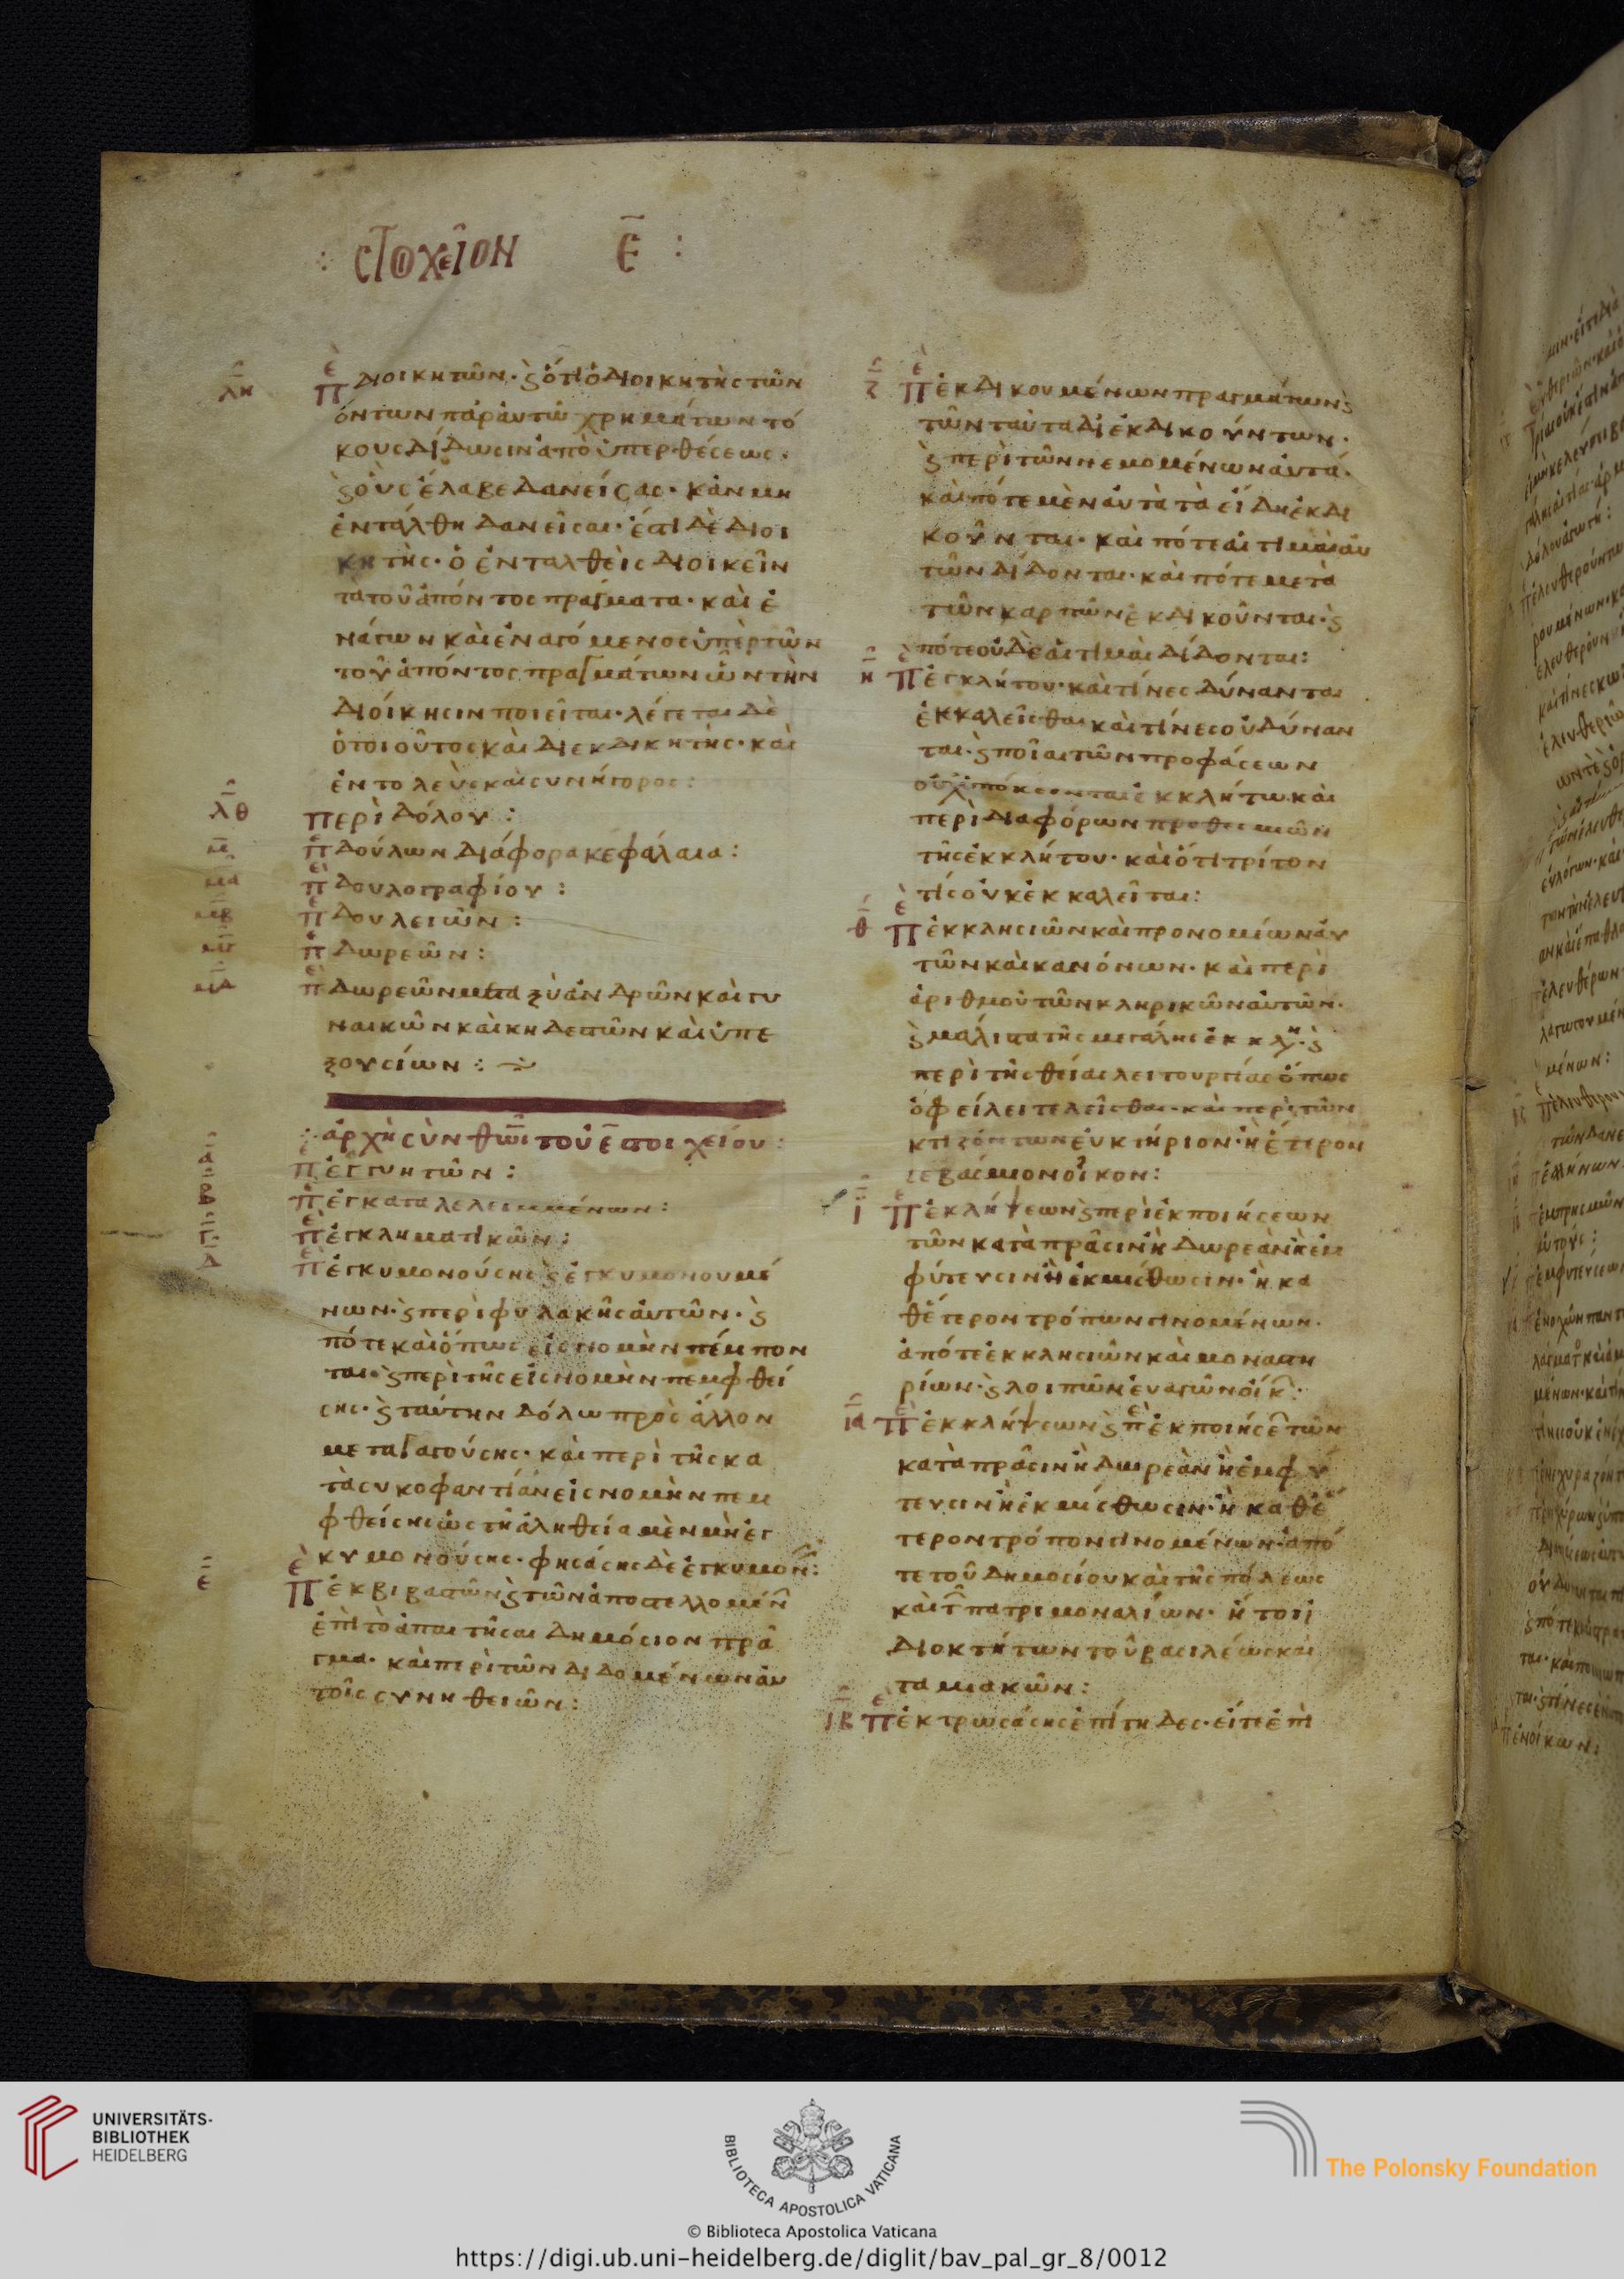 στοιχεῖον ε̄ :
λη πε διοικητῶν· ϛ ὅτι ὁ διοικητὴς τῶν
ὄντων παρ' αὐτῶ χρημάτων τό
κους δίδωσιν ἀπὸ ὑπερθέσεως·
ϛ οὓς ἔλαβε δανείσας· κἂν μὴ
ἐντάλθη δανεῖσαι· ἔστι δὲ διοι
κητής· ὁ ἐνταλθεὶς διοικεῖν
τὰ τοῦ ἀπόντος πράγματα· καὶ ἐ
νάγων καὶ ἐναγόμενος ὑπὲρ τῶν
τοῦ ἀπόντος πραγμάτων ὧν τὴν
διοίκησιν ποιεῖται· λέγεται δὲ
ὁ τοιοῦτος καὶ διεκδικητής· καὶ
ἐντολεὺς καὶ συνήγορος:
λθ περὶ δόλου :
μ πε δούλων διάφορα κεφάλαια :
μα πε δουλογραφίου :
μβ πε δουλειῶν :
μγ πε δωρεῶν :
μδ πε δωρεῶν μεταξὺ ἀνδρῶν καὶ γυ
ναικῶν καὶ κηδεστῶν καὶ ὑπε
ξουσίων :
ἀρχὴ σὺν θωῖ τοῦ ε̄ στοιχείου :
α πε ἐγγυητῶν :
β πε ἐγκαταλελειμμένων :
γ πε ἐγκληματικῶν :
δ πε ἐγκυμονούσης ϛ ἐγκυμονουμέ
νων· ϛ περὶ φυλακῆς αὐτῶν· ϛ
πότε καὶ ὅπως εἰς νομὴν πέμπον
ται· ϛ περὶ τῆς εἰς νομὴν πεμφθεί
σης· ϛ ταύτην δόλω πρὸς ἄλλον
μεταγαγούσης· καὶ περὶ τῆς κα
τὰ συκοφαντίαν εἰς νομὴν πεμ
φθείσης ὡς τῆ ἀληθεία μὲν μὴ ἐγ
κυμονούσης· φησάσης δὲ ἐγκυμον:
ε πε ἐκβιβαστῶν ϛ τῶν ἀποστελλομέν
ἐπὶ τὸ ἀπαιτῆσαι δημόσιον πρᾶ
γμα· καὶ περὶ τῶν διδομένων αὐ
τοῖς συνηθειῶν :
ζ πε ἐκδικουμένων πραγμάτων ϛ
τῶν ταῦτα διεκδικούντων·
ϛ περὶ τῶν νεμομένων αὐτά·
καὶ πότε μὲν αὐτὰ τὰ εἴδη ἐκδι
κοῦνται· καὶ πότε αἱ τιμαὶ αὐ
τῶν δίδονται· καὶ πότε μετὰ
τῶν καρπῶν ἐκδικοῦνται· ϛ
πότε οὐδὲ αἱ τιμαὶ δίδονται:
η πε ἐγκλήτου· καὶ τίνες δύνανται
ἐκκαλεῖσθαι καὶ τίνες οὐ δύναν
ται· ϛ ποῖαι τῶν προφάσεων
οὐχ ὑπόκεινται ἐκκλήτω· καὶ
περὶ διαφόρων προθεσμιῶν
τῆς ἐκκλήτου· καὶ ὅτι τρίτον
τὶς οὐκ ἐκκαλεῖται:
θ πε ἐκκλησιῶν καὶ προνομίων αὐ
τῶν καὶ κανόνων· καὶ περὶ
ἀριθμοῦ τῶν κληρικῶν αὐτῶν·
ϛ μάλιστα τῆς μεγάλης ἐκκλη· ϛ
περὶ τῆς θείας λειτουργίας ὅπως
ὀφείλει τελεῖσθαι· καὶ περὶ τῶν
κτιζόντων εὐκτήριον· ἢ ἕτερον
σεβάσμιον οἶκον:
ι πε ἐκλήψεων ϛ περὶ ἐκποιήσεων
τῶν κατὰ πρᾶσιν ἢ δωρεὰν ἢ ἐμ
φύτευσιν ἢ ἐκμίσθωσιν· ἢ κα
θ' ἕτερον τρόπων γινομένων·
ἀπό τε ἐκκλησιῶν καὶ μοναστη
ρίων· ϛ λοιπῶν εὐαγῶν οἴκ:
ια πε ἐκκλήψεων ϛ πε ἐκποιήσε τῶν
κατὰ πρᾶσιν ἢ δωρεὰν ἢ ἐμφύ
τευσιν ἢ ἐκμίσθωσιν· ἢ καθ' ἕ
τερον τρόπον γινομένων· ἀπό
τε τοῦ δημοσίου καὶ τῆς πόλεως
καὶ τ πατριμοναλίων· ἤτοι ἰ
διοκτήτων τοῦ βασιλέως καὶ
ταμιακῶν :
ιβ πε ἐκτρωσάσης ἐπίτηδες· εἴτε ἐπὶ
UNIVERSITÄTS-
BIBLIOTHEK
HEIDELBERG
BIBLIOTECA APOSTOLICA VATICANA
The Polonsky Foundation
© Biblioteca Apostolica Vaticana
https://digi.ub.uni-heidelberg.de/diglit/bav_pal_gr_8/0012